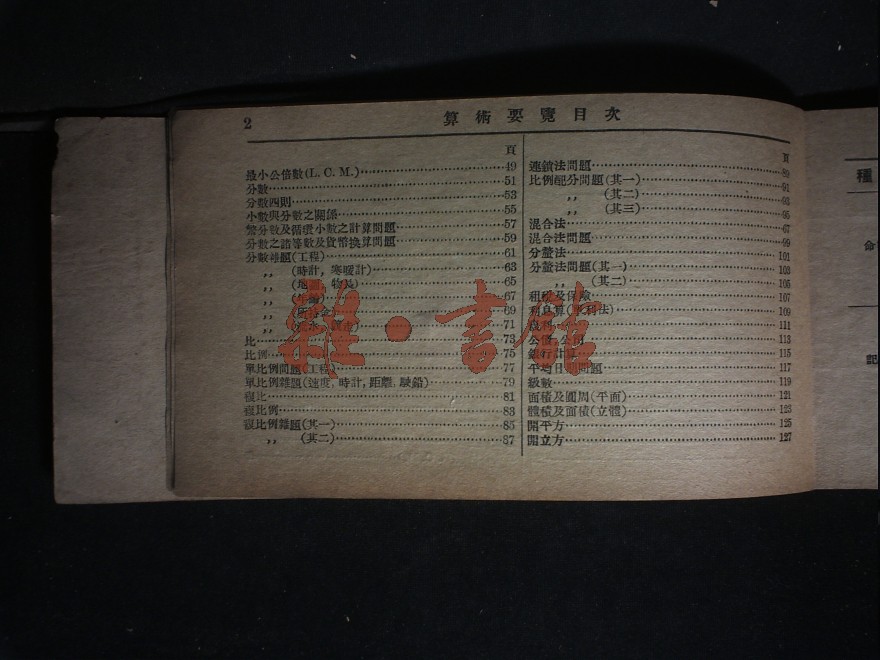 2
算術要覽目次
頁
最小公倍數(L. C. M.)……49
分數……51
分數四則……53
小數與分數之關係……55
繁分數及循環小數之計算問題……57
分數之諸等數及貨幣換算問題……59
分數雜題(工程)……61
,, (時計, 寒暖計)……63
,, (地圖, 物品)……65
,,……67
,,……69
,,……71
比……73
比例……75
單比例問題(工程)……77
單比例雜題(速度, 時計, 距離, 駛船)……79
複比……81
複比例……83
複比例雜題(其一)……85
,, (其二)……87
頁
連鎖法問題……89
比例配分問題(其一)……91
,, (其二)……93
,, (其三)……95
混合法……97
混合法問題……99
分釐法……101
分釐法問題(其一)……103
,, (其二)……105
租稅及保險……107
利息算(單利法)……109
複利……111
公債, 公司……113
銀行計算……115
平均日期問題……117
級數……119
面積及圓周(平面)……121
體積及面積(立體)……123
開平方……125
開立方……127
種
命
記
雜·書館